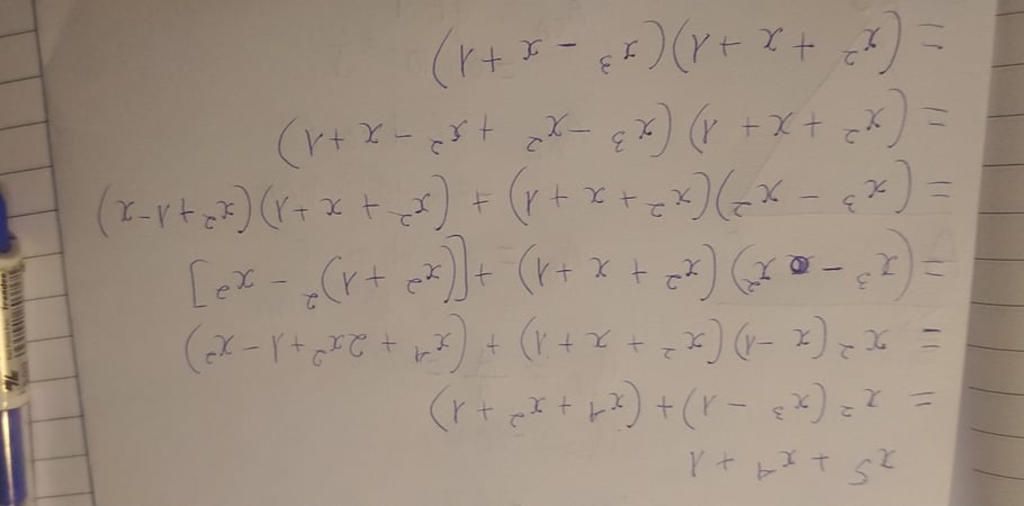 x⁵ + x⁴ + 1
= x²(x³ - 1) + (x⁴ + x² + 1)
= x²(x - 1)(x² + x + 1) + (x⁴ + 2x² + 1 - x²)
= (x³ - x²)(x² + x + 1) + [(x² + 1)² - x²]
= (x³ - x²)(x² + x + 1) + (x² + x + 1)(x² + 1 - x)
= (x² + x + 1)(x³ - x² + x² - x + 1)
= (x² + x + 1)(x³ - x + 1)